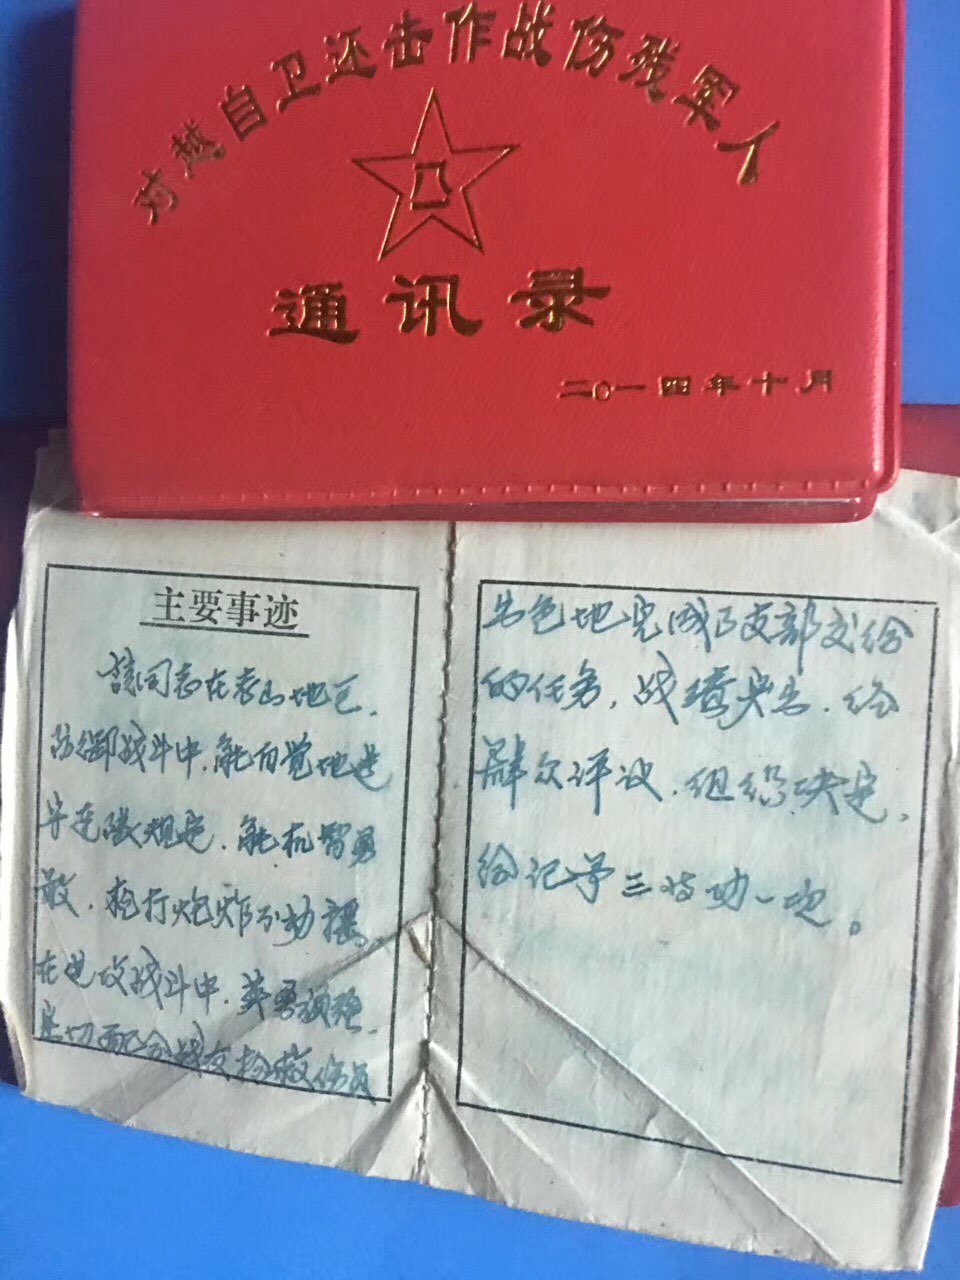 对越自卫还击作战伤残军人
八一
通讯录
二〇一四年十月
主要事迹
该同志在老山地区,
防御战斗中,能自觉地遵
守连队规定,能机智勇
敢,枪打炮炸不动摇,
在进攻战斗中,英勇顽强,
密切配合战友抢救伤员
出色地完成了支部交给
的任务,战绩突出,经
群众评议,组织决定,
给记予三等功一次。